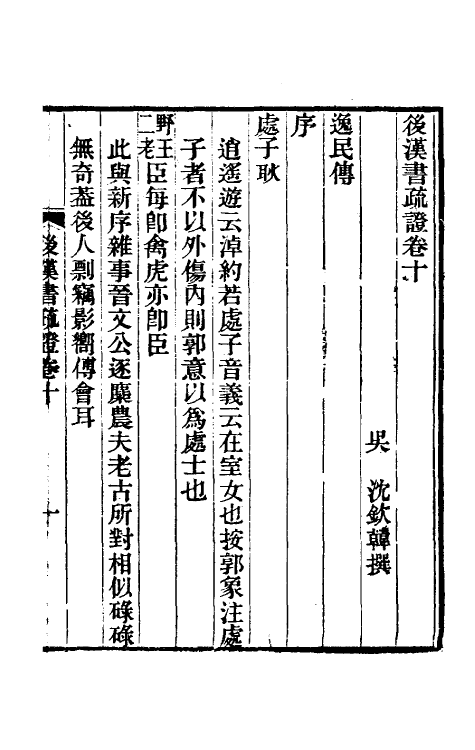 後漢書疏證卷十
吳　沈欽韓撰
逸民傳
序
處子耿
逍遙遊云淖約若處子音義云在室女也按郭象注處
子者不以外傷內則郭意以爲處士也
野王二老臣每卽禽虎亦卽臣
此與新序雜事晉文公逐麋農夫老古所對相似碌碌
無奇蓋後人剽竊影嚮傅會耳
後漢書疏證卷十
一